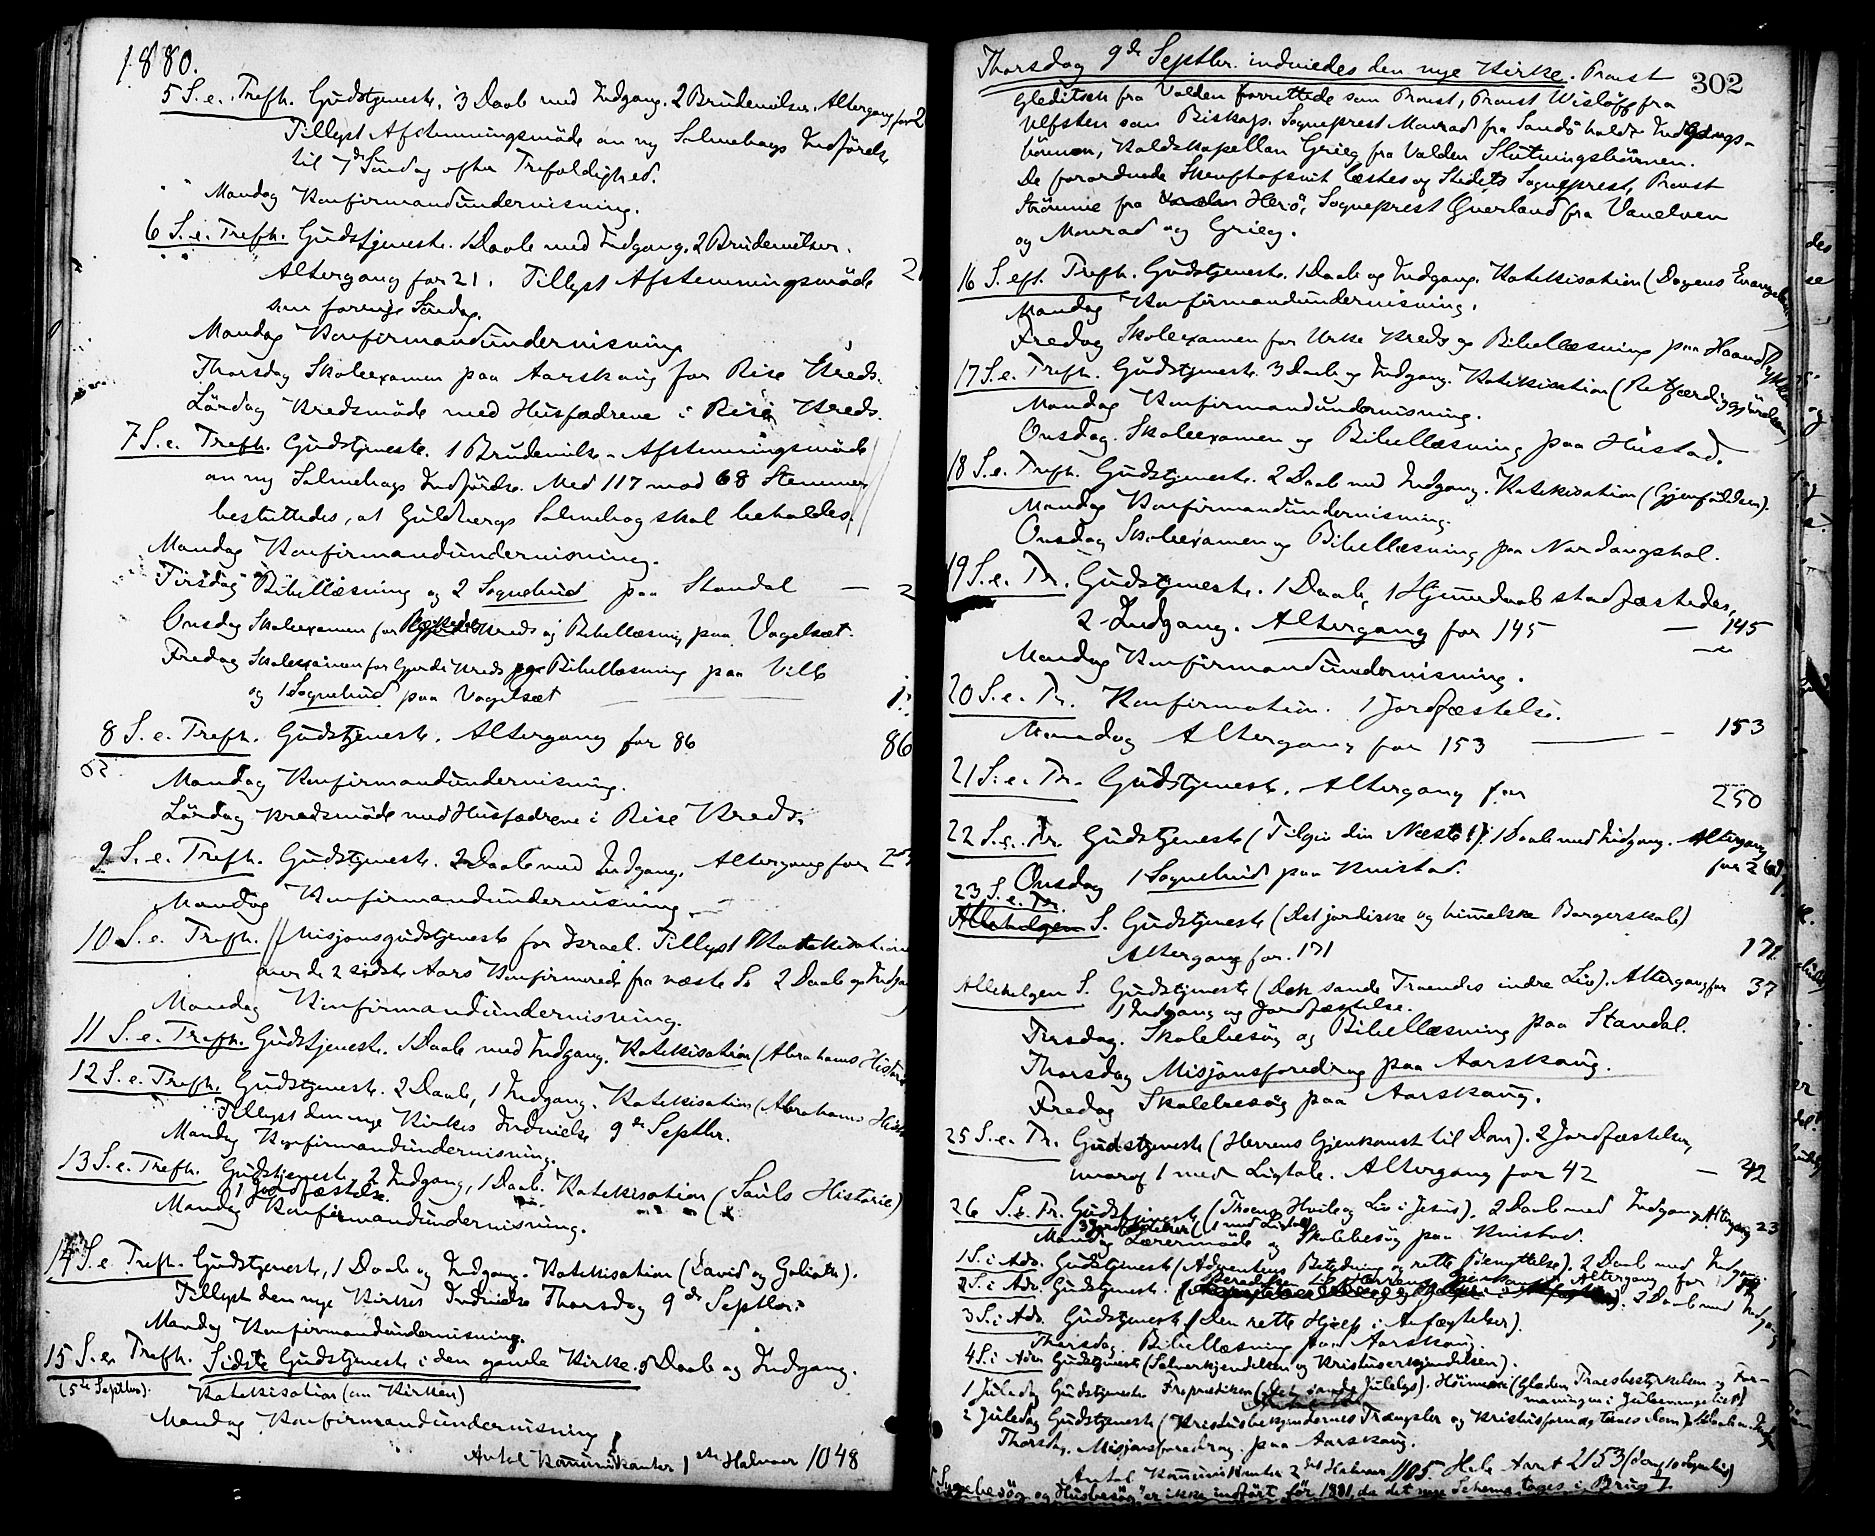 1880.
5 S. e. Trefh. Gudstjeneste. 3 Daab med Indgang. 2 Brudevielser. Altergang for 2
Tillyst Afstemningsmøde om ny Salmebogs Indførelse
til 7de Søndag efter Trefoldighed.
Mandag Konfirmandundervisning.
6 S. e. Trefh. Gudstjeneste. 1 Daab med Indgang. 2 Brudevielser.
Altergang for 21. Tillyst Afstemningsmøde 21
som forrige Søndag.
Mandag Konfirmandundervisning
Thorsdag Skoleexamen paa Aarskaug for Rise Kreds.
Lördag Kredsmöde med Husfædrene i Rise Kreds.
7 S. e. Trefh. Gudstjeneste. 1 Brudevielse. Afstemningsmöde
om ny Salmebogs Indførelse. Med 117 mod 68 Stemmer
besluttedes, at Guldbergs Salmebog skal beholdes.
Mandag Konfirmandundervisning.
Tirsdag Bibellæsning og 2 Sognebud paa Standal — 2
Onsdag Skoleexamen for Kreds og Bibellæsning paa Vagelsæt.
Fredag Skolexamen for Gjerde Kreds Bibellæsning paa Vilb
og 1 Sognebud paa Vagelsæt 1
8 S. e. Trefh. Gudstjeneste. Altergang for 86 86
Mandag Konfirmandundervisning.
Lördag Kredsmöde med Husfædrene i Rise Kreds.
9 S. e. Trefh. Gudstjeneste. 2 Daab med Indgang. Altergang for
Mandag Konfirmandundervisning.
10 S. e. Trefh. Misjonsgudstjeneste for Israel. Tillyst Katekisation
over de 2 sidste Aars Konfirmerede fra næste S. 2 Daab og Indgang
Mandag Konfirmandundervisning.
11 S. e. Trefh. Gudstjeneste. 1 Daab med Indgang. Katekisation (Abrahams Historie
12 S. e. Trefh. Gudstjeneste. 2 Daab, 1 Indgang. Katekisation (Abrahams Historie
Tillyst den nye Kirkes Indvielse 9de Septbr.
Mandag Konfirmandundervisning.
13 S. e. Trefh. Gudstjeneste. 2 Indgang, 1 Daab. Katekisation (Sauls Historie)
1 Jordfæstelse.
Mandag Konfirmandundervisning.
14 S. e. Trefh. Gudstjeneste, 1 Daab og Indgang. Katekisation (David og Goliath).
Tillyst den nye Kirkes Indvielse Thorsdag 9de Septbr.
Mandag Konfirmandundervisning.
15 S. e. Trefh. Sidste Gudstjeneste i den gamle Kirke. 5 Daab og Indgang.
(5te Septbr). Katekisation (om Kirken)
Mandag Konfirmandundervisning
Antal Kommunikanter 1ste Halvaar 1048
302
Thorsdag 9de Septbr. indviedes den nye Kirke. Provst
Gleditsch fra Volden forrettede som Provst, Provst Wisløff fra
Ulfsten som Biskop. Sogneprest Monrad fra Sandö holdt Indgangs-
bönnen, Kaldskapellan Grieg fra Volden Slutningsbönnen.
De forordnede Skriftafsnit læstes og Stedets Sogneprest, Provst
Strömme fra Herö, Sogneprest Överland fra Vanelven
og Monrad og Grieg.
16 S. eft. Trefh. Gudstjeneste. 1 Daab og Indgang. Katekisation (Dagens Evangelium)
Mandag Konfirmandundervisning.
Fredag Skolexamen for Urke Kreds og Bibellæsning paa Haandtykke
17 S. e. Trefh. Gudstjeneste. 3 Daab og Indgang. Katekisation (Retfærdiggjörelsen)
Mandag Konfirmandundervisning.
Onsdag. Skoleexamen og Bibellæsning paa Hustad.
18 S. e. Trefh. Gudstjeneste. 2 Daab med Indgang. Katekisation (Gjenfödelsen).
Mandag Konfirmandundervisning.
Onsdag Skolexamen og Bibellæsning paa Nordangshol.
19 S. e. Tr. Gudstjeneste. 1 Daab, 1 Hjemmedaab stadfæstedes,
2 Indgang. Altergang for 145 — 145
Mandag Konfirmandundervisning.
20 S. e. Tr. Konfirmation. 1 Jordfæstelse.
Mandag Altergang for 153 — 153
21 S. e. Tr. Gudstjeneste. Altergang for 250
22 S. e. Tr. Gudstjeneste (Tilgiv din Næste!). 1 Daab med Indgang. Altergang
for 26
Onsdag 1 Sognebud paa Kvistad.
23 S. e. Tr.
Allehelgen S. Gudstjeneste (Det jordiske og himmelske Borgerskab)
Altergang for 171 171
Allehelgen S. Gudstjeneste (Den sande Troendes indre Liv). Altergang for 37
1 Indgang og Jordfæstelse.
Tirsdag. Skolebesög og Bibellæsning paa Standal.
Thorsdag Misjonsforedrag paa Aarskaug.
Fredag Skolebesög paa Aarskaug.
25 S. e. Tr. Gudstjeneste (Herrens Gjenkomst til Dom). 2 Jordfæstelser,
hvoraf 1 med Ligtale. Altergang for 42 — 42
26 S. e. Tr. Gudstjeneste (Troens Hvile og Liv i Jesus). 2 Daab med Indgang Altergang 23
3 Jordfæstelser (1 med Ligtale)
Mandag Lærermöde og Skolebesög paa Kvistad.
1 S. i Adv. Gudstjeneste (Adventens Betydning og rette Benyttelse). 2 Daab med Indgang.
Altergang for
2 S. i Adv. Gudstjeneste. 2 Daab med Indgang
3 S. i Adv. Gudstjeneste (Den rette Hjælp i Anfægtelser).
Thorsdag. Bibellæsning paa Aarskaug.
4 S. i Adv. Gudstjeneste (Selverkjendelsen og Kristuserkjendelsen).
1 Juledag Gudstjeneste Fropræken (Det sande Julelys). Höimesse (Glæden, Troesbestyrkelsen og For-
maningen i Juleevangeliet)
2 Juledag Gudstjeneste (Kristusbekjendernes Trængsler og Kristusfornægternes Dom).
Thorsdag. Misjonsforedrag paa Aarskaug.
Antal Kommunikanter 2det Halvaar 1105. Hele Aaret 2153
"Sygebesög og Husbesög" er ikke indfört för 1881, da det nye Schema toges i Brug.